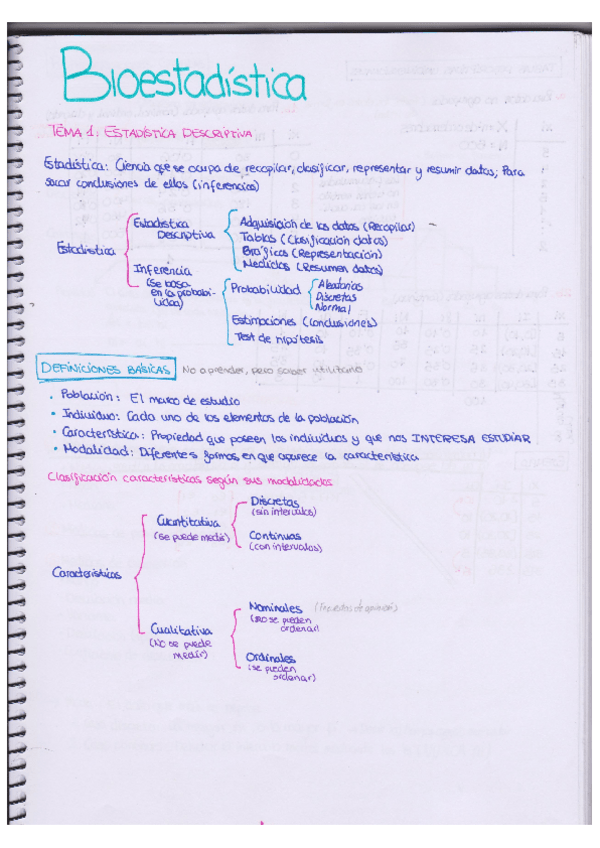 Bioestadística
TEMA 1: ESTADÍSTICA DESCRIPTIVA
Estadística: Ciencia que se ocupa de recopilar, clasificar, representar y resumir datos; Para
sacar conclusiones de ellos (inferencia)
Estadística
Estadística
Descriptiva
Adquisición de los datos (Recopilar)
Tablas (Clasificación datos)
Gráficos (Representación)
Medidas (Resumen datos)
Inferencia
(Se basa
en la probabi-
lidad)
Probabilidad
Aleatorias
Discretas
Normal
Estimaciones (conclusiones)
Test de hipótesis
DEFINICIONES BÁSICAS
No aprender, pero saber utilizarlo
• Población: El marco de estudio
• Individuo: Cada uno de los elementos de la población
• Característica: Propiedad que poseen los individuos y que nos INTERESA ESTUDIAR
• Modalidad: Diferentes formas en que aparece la característica
Clasificación características según sus modalidades
Características
Cuantitativa
(se puede medir)
Discretas
(sin intervalos)
Continuas
(con intervalos)
Cualitativa
(No se puede
medir)
Nominales
(no se pueden
ordenar)
Ordinales
(se pueden
ordenar)